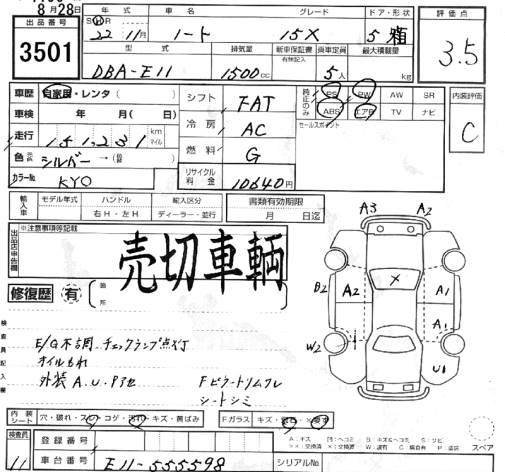 8月28日
出品番号
3501
年式 車名 グレード ドア・形状
22 11月 ノート 15X 5 箱
型式 排気量 新車保証書 乗車定員 最大積載量
有無記入
DBA-E11 1500cc 5人 kg
評価点
3.5
車歴 自家用・レンタ(
車検 年 月(日)
走行 1,5 1,2 3 1 km マイル
色 シルバー→(
カラーNo KY0
シフト FAT
冷房 AC
燃料 G
リサイクル料金 10640円
純正のみ PS PW AW SR
ABS エアB TV ナビ
セールスポイント
内装評価
C
輸入車 モデル年式 ハンドル 輸入区分
右H・左H ディーラー・並行
書類有効期限
月 日迄
出品店申告欄
※注意事項等記載
売切車輌
修復歴 有 箇所
検査員記入欄
E/G不調 チェックランプ点灯
オイルもれ
外装 A.U.P3セ
シートシミ
A3 A2
B2 A2 × A1
W2 A1
U1
内装シート 穴・破れ・スレ・コゲ・汚れ・キズ・黄ばみ
Fガラス キズ・
スペア
検査員
11
登録番号
車台番号 E11-555598
シリアルNo.